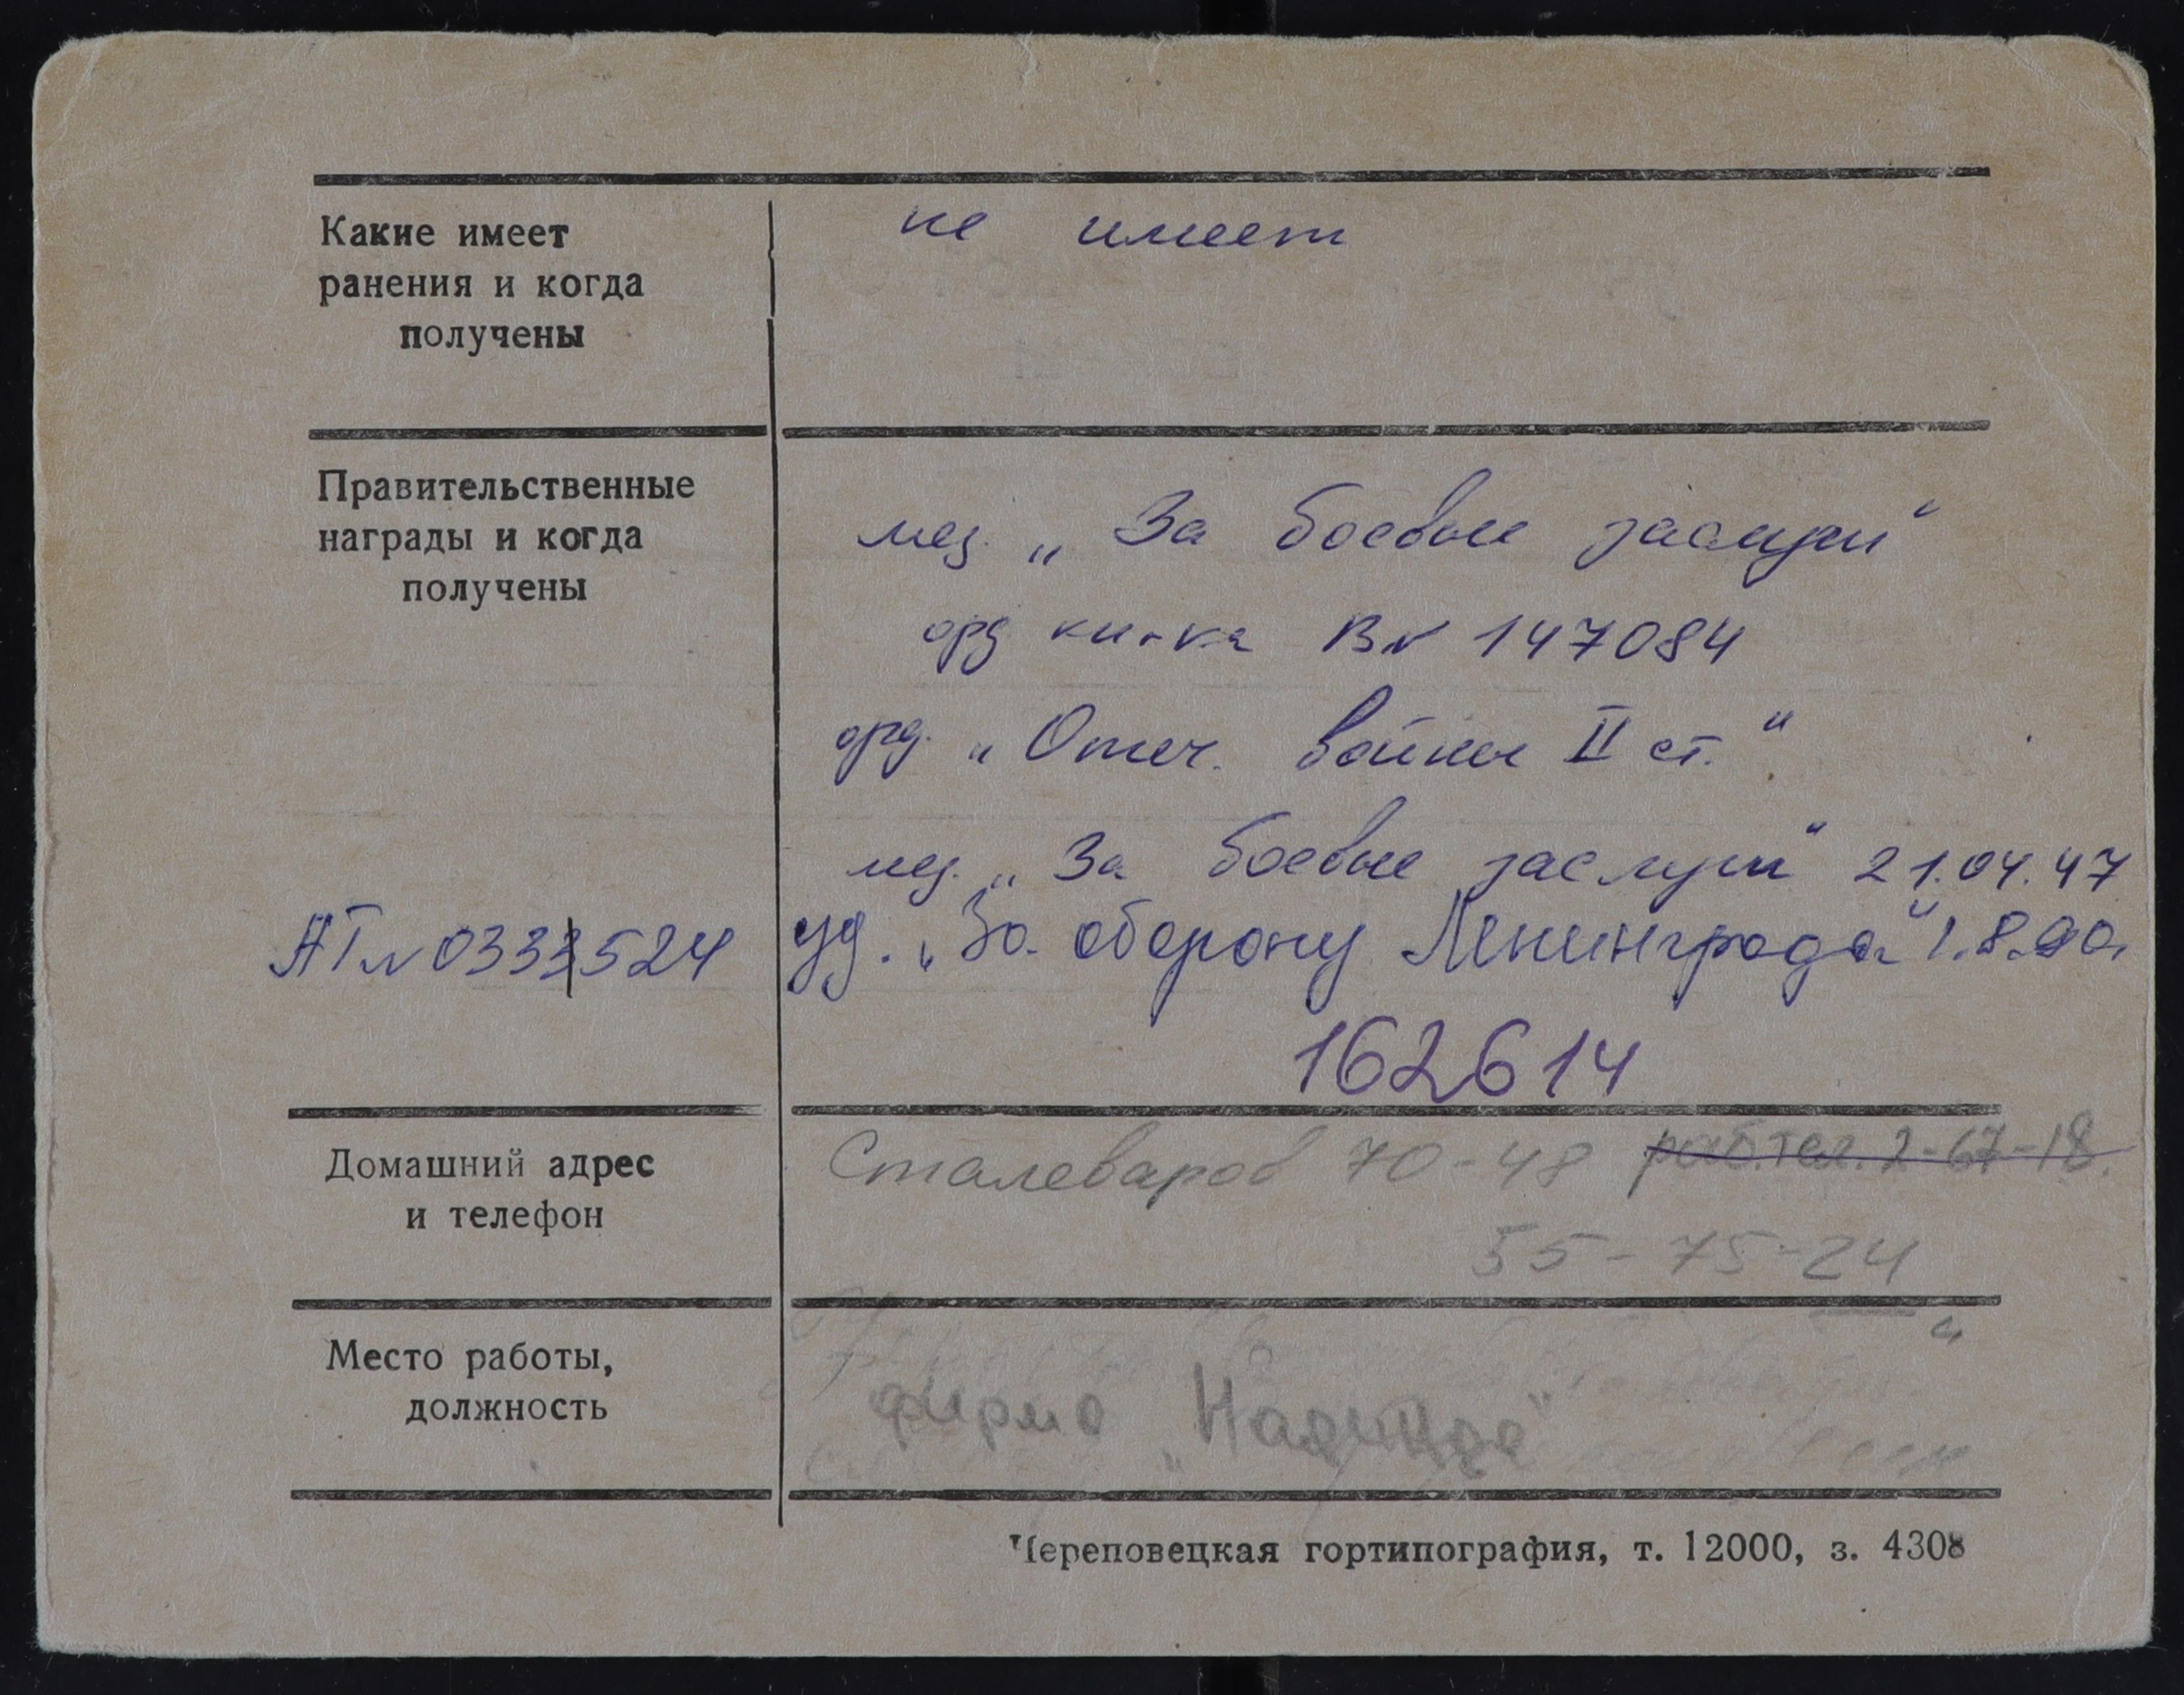 Какие имеет
ранения и когда
получены
не имеет
Правительственные
награды и когда
получены
мед. „За боевые заслуги“
орд кн-ка В№ 147084
орд. „Отеч. войны II ст.“
мед. „За боевые заслуги“ 21.04.47
АТ№0333524 уд. „За оборону Ленинграда“ 1.8.90.
162614
Домашний адрес
и телефон
Сталеваров 70-48 раб.тел. 2-67-18.
55-75-24
Место работы,
должность
фирма „Надежда“
Череповецкая гортипография, т. 12000, з. 4308